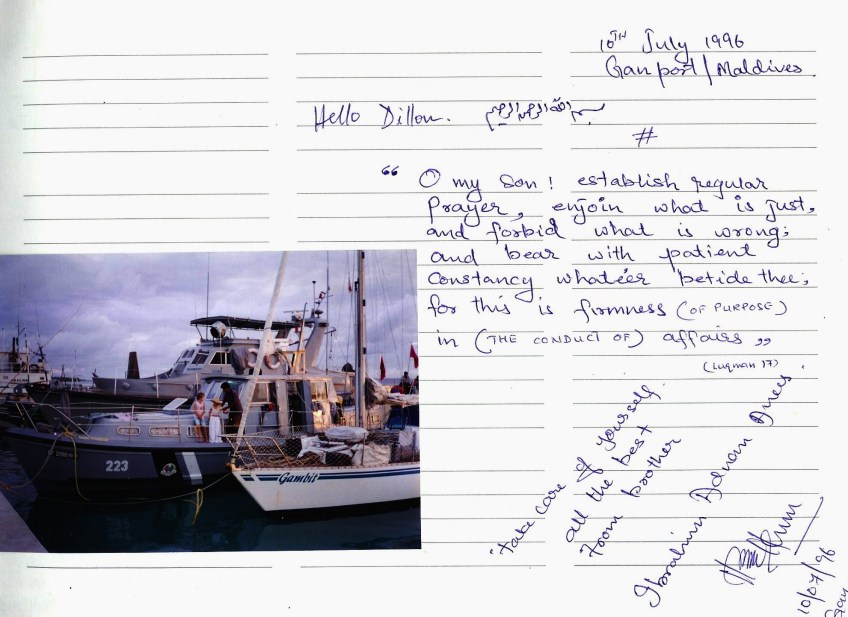 10TH July 1996
Gan port/Maldives.
Hello Dillon.
#
“ O my son! establish regular
Prayer, enjoin what is just,
and forbid what is wrong;
and bear with patient
constancy whate'er betide thee;
for this is firmness (OF PURPOSE)
in (THE CONDUCT OF) affairs ”
(Luqman 17)
"take care of yourself.
all the best
From brother
Ibrahim Adnan Anees
10/07/96
Gan
223
Gambit